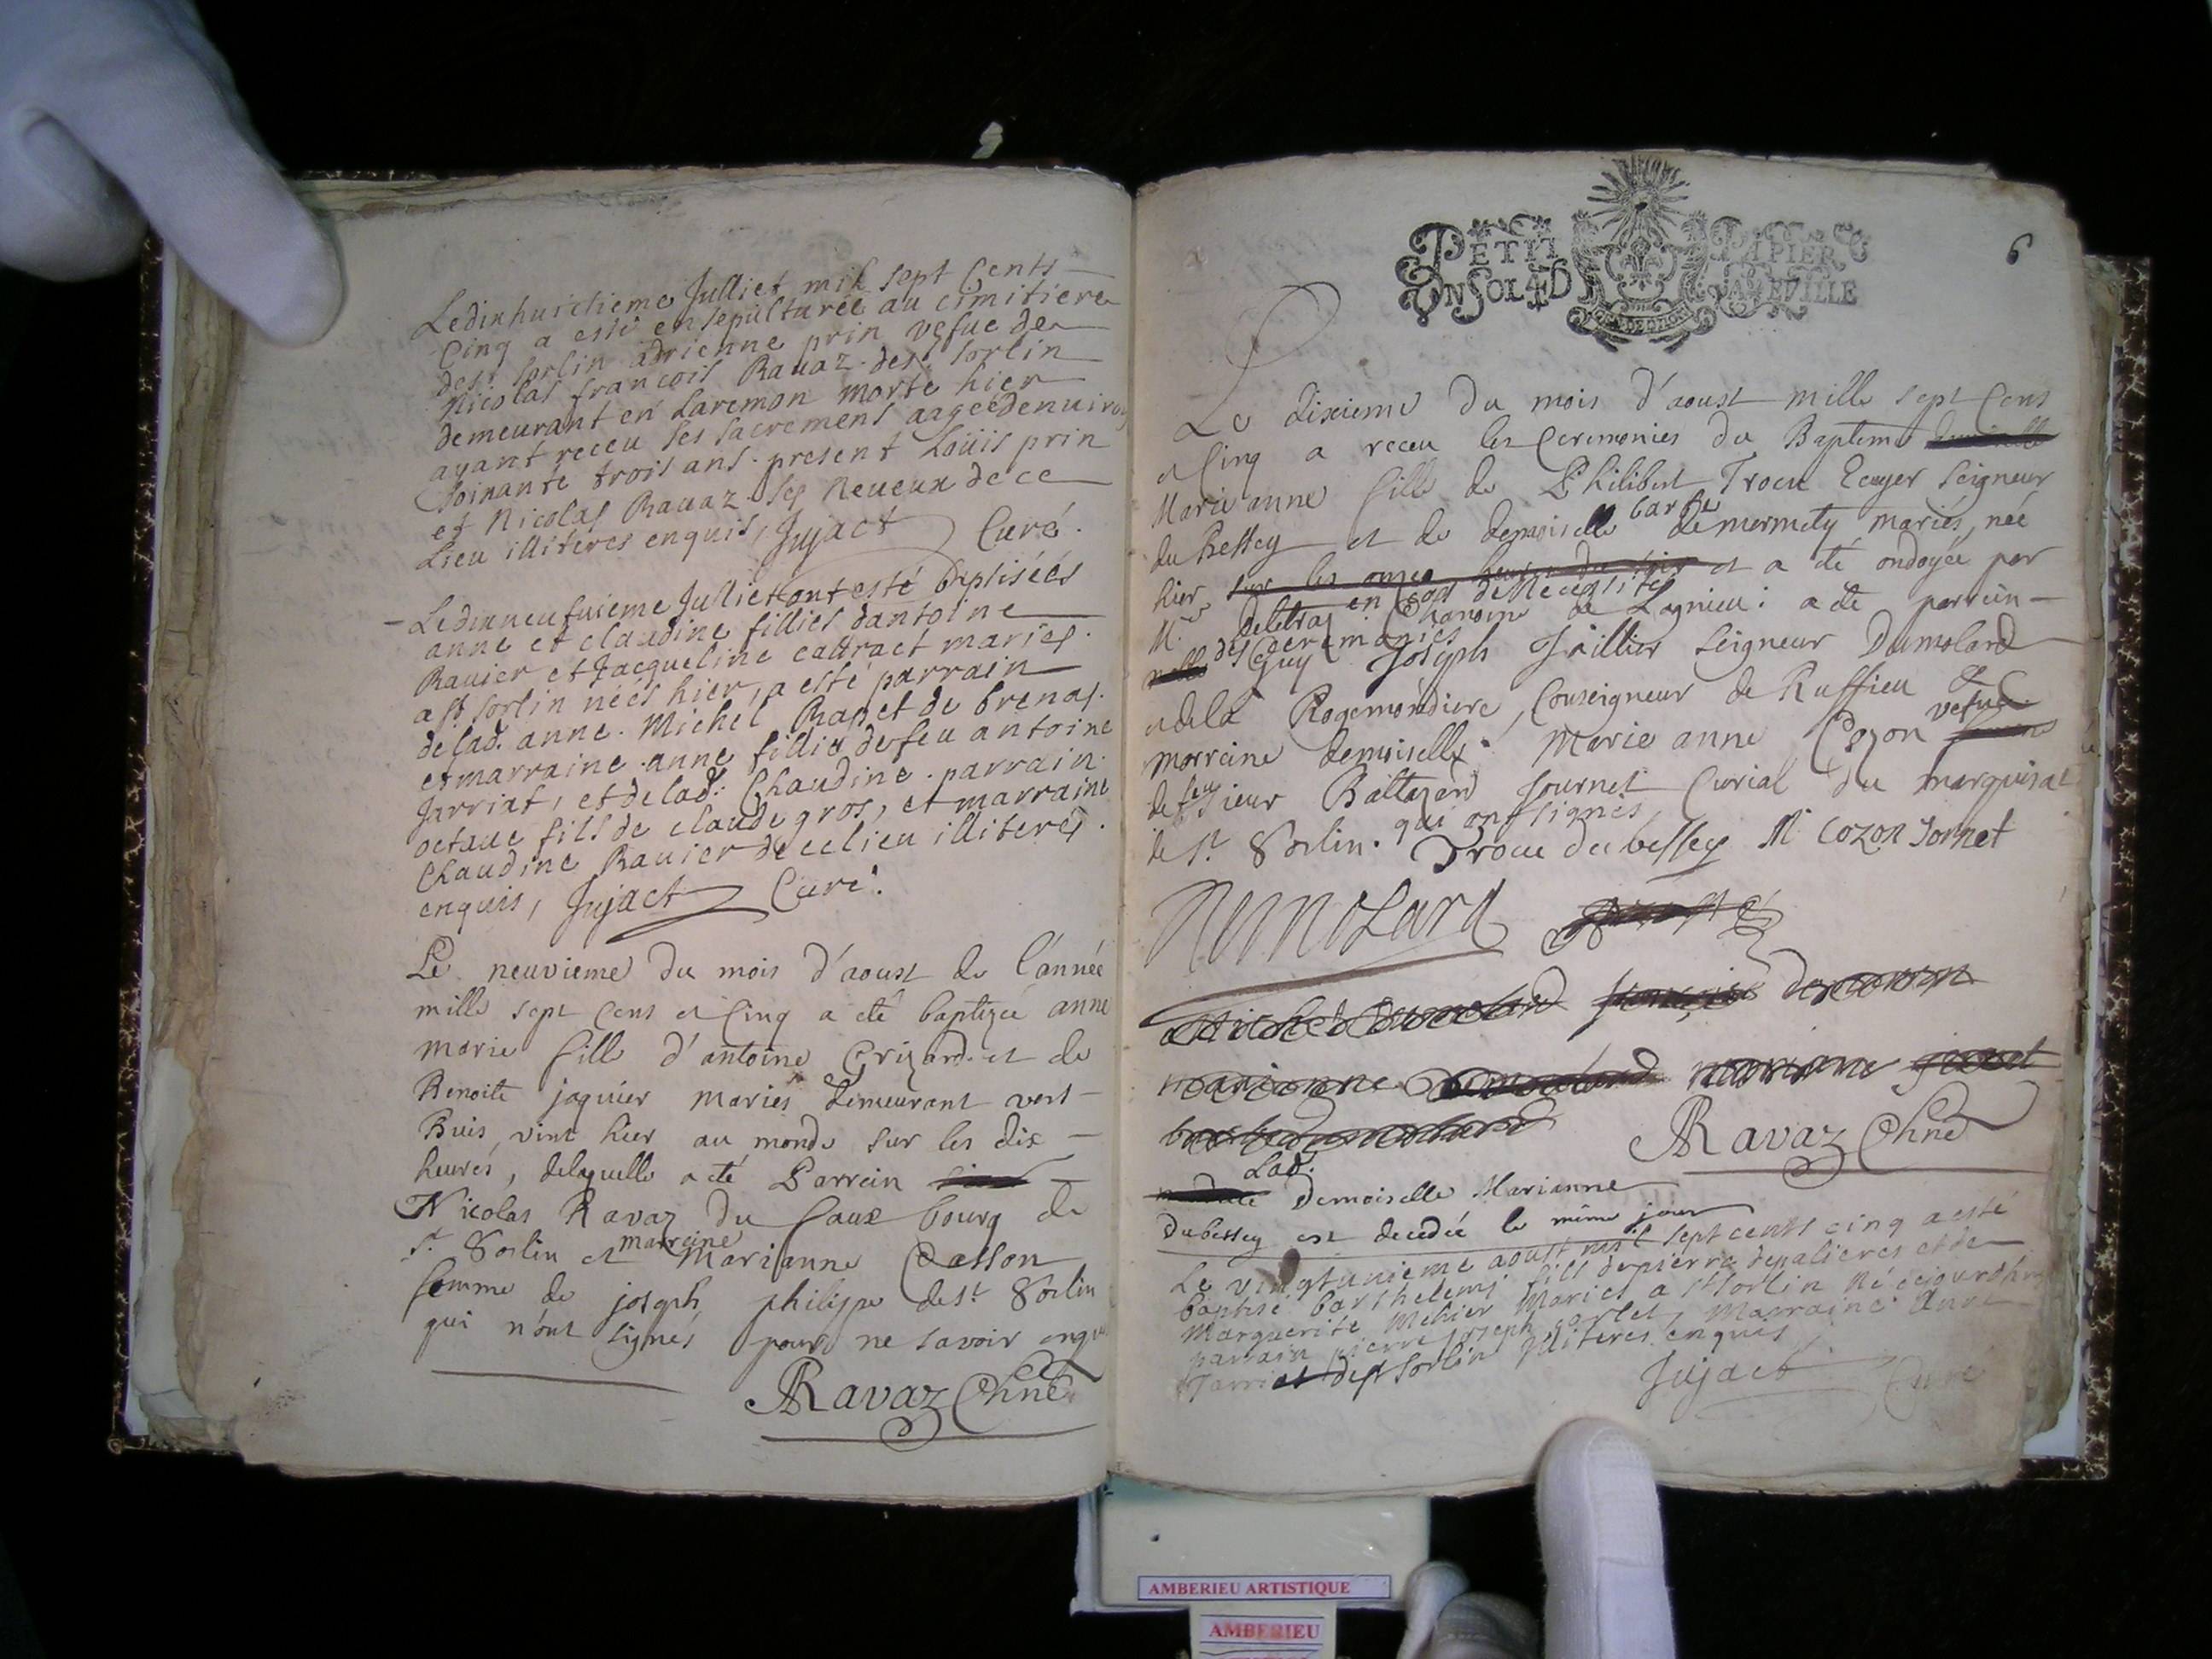 Ledixhuictieme Julliet mil sept Cents
Cinq a esté ensepulturée au cimitiere
de st sorlin adrienne prin vefue de
Nicolas francois Rauaz de st sorlin
demeurant en Laremon morte hier
ayant receu ses sacremens aagée denuiron
soixante trois ans. present Loüis prin
et Nicolas Rauaz ses neueux de ce
Lieu illiteres enquis, Jujact Curé.
Ledixneufuieme Julliet ont esté baptisées
anne et claudine fillies dantoine
Rauier et Jacqueline cattract mariés
a st sorlin néés hier, a esté parrain
de lad. anne. Michel Rapet de brenas.
et marraine anne fillie de feu antoine
Jarriat, et de lad. Claudine parrain
octaue fils de claude gros, et marraine
Claudine Rauier de ce lieu illiteres.
enquis, Jujact Curé.
Le neuvieme du mois d'aoust de l'année
mille sept cens et Cinq a eté baptizée anne
marie fille d'antoine Grizard et de
Benoite jaquier mariés demeurant vers
Buis, vint hier au monde sur les dix
heures, delaquelle a eté Parrein
Nicolas Ravaz du faux bourg de
st Sorlin et marreine Marianne Casson
femme de joseph philippe de st Sorlin
qui n'ont signés pour ne savoir enquis
Ravaz Chne
PETIT PAPIER
UN SOL 4D LA FEVILLE
6
Le dixieme du mois d'aoust mille sept Cens
et Cinq a receu les Ceremonies du Bapteme
Marie anne fille de Philibert Trocu Ecuyer seigneur
du Bessey et de demoiselle barbe de mermety mariés, née
hier sur les onze et a eté ondoyée par
Mr. Deletraz en cas de necessité Chanoine de Lagnieu: a eté parrein
des Ceremonies Guy Joseph Jaillier seigneur Dumolard
et dela Rogemondiere, Conseigneur de Ruffieu &
marreine demoiselle Marie anne Cozon vefue
de feu sieur Baltazard Journet Curial du marquisat
de st Sorlin. qui ont signés Trocu du bessey M Cozon Jornet
Dumolard
marianne marianne
Ravaz Chne
Lad. Demoiselle Marianne
Dubessey est decedée le même jour
Le vingtunieme aoust mil sept cents cinq a esté
baptisé barthelemj fils de pierre depalieres et de
Marguerite Mehier Mariés a st sorlin né cejourdhuy
parrain pierre Joseph, Marraine Anne
Jarriat de st sorlin illiteres enquis
Jujact Curé
AMBERIEU ARTISTIQUE
AMBERIEU